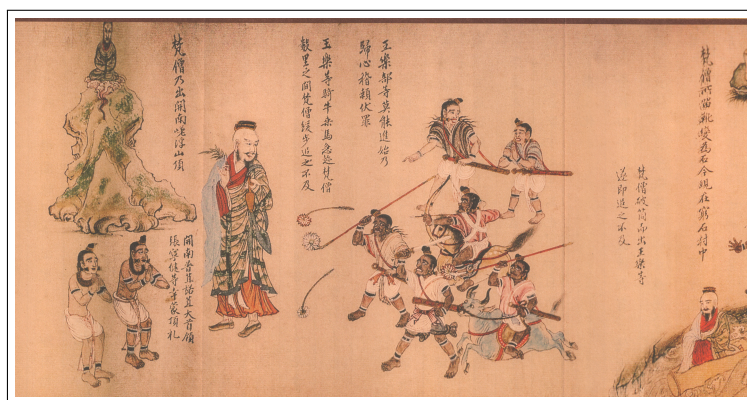 梵僧所留靴變爲石今現在窮石村中
梵僧破筒而出王樂等
遂即追之不及
王樂部等莫能進始乃
歸心稽顙伏罪
王樂等騎牛乘馬急追梵僧
數里之間梵僧緩步追之不及
梵僧乃出開南嵯浮山頂
開南普苴諾苴大首領
張寧健等蒙頂礼